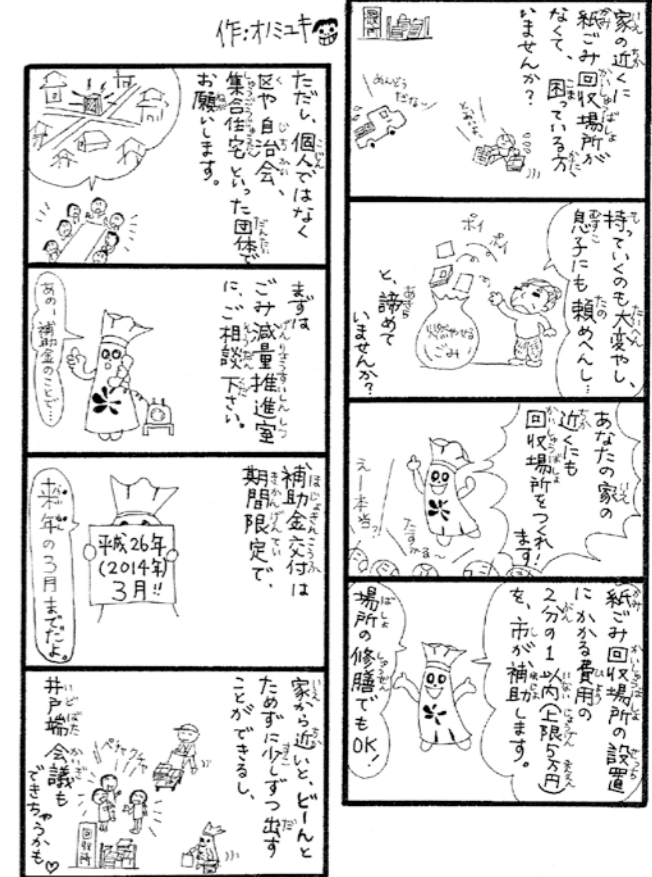 作:オノミユキ
家の近くに
紙ごみ回収場所が
なくて、困っている方
いませんか?
回収所
めんどう
だなー
とおいよ。
持っていくのも大変やし、
息子にも頼めへんし…
ポイ
ポイ
燃やせる
ごみ
と、諦めて
いませんか?
あなたの家の
近くにも
回収場所をつくれ
ます!
えー本当?!
たすかる〜
紙ごみ回収場所の設置
にかかる費用の
2分の1以内(上限5万円)
を、市が補助します。
場所の修膳でも
OK!
ただし、個人ではなく
区や自治会、
集合住宅といった団体で
お願いします。
まずは
ごみ減量推進室
に、ご相談下さい。
あのー、
補助金のことで…
補助金交付は
期間限定で、
平成26年
(2014年)
3月!!
来年の3月までだよ。
家から近いと、どーんと
ためずに少しずつ出す
ことができるし、
ペチャクチャ
井戸端会議も
できちゃうかも♡
回収所